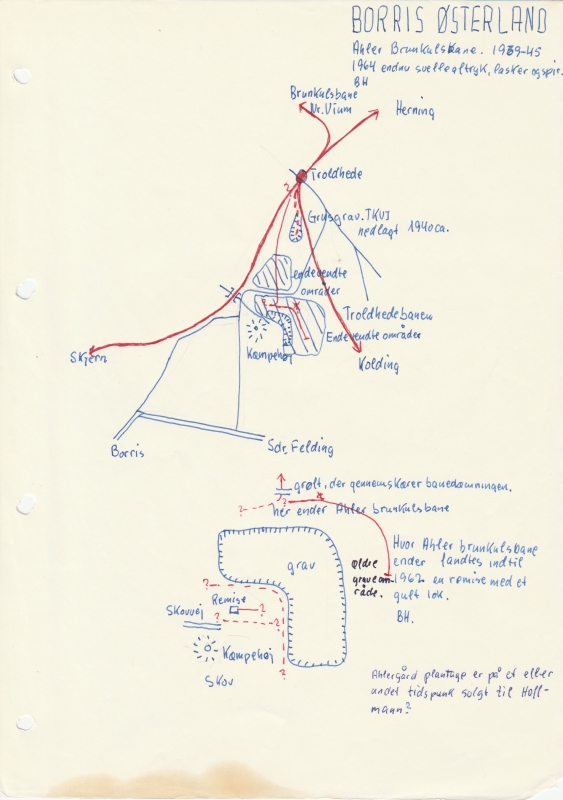 BORRIS ØSTERLAND
Ahler Brunkulsbane. 1939-45
1964 endnu svelleaftryk, lasker og spir.
BH
Brunkulsbane
Nr. Vium
Herning
Troldhede
?
Grusgrav. TKVJ
nedlagt 1940ca.
endevendte
områder
Troldhedebanen
Endevendte områder
Kæmpehøj
Skjern
Kolding
Borris
Sdr. Felding
grøft, der gennemskærer banedæmningen.
?
?
her ender Ahler brunkulsbane
grav
Ældre
graveom-
råde.
Hvor Ahler brunkulsbane
ender fandtes indtil
1962 en remise med et
gult lok.
BH.
?
Remise
?
Skovvej
?
?
Kæmpehøj
?
Skov
Ahlergård plantage er på et eller
andet tidspunk solgt til Hoff-
mann?